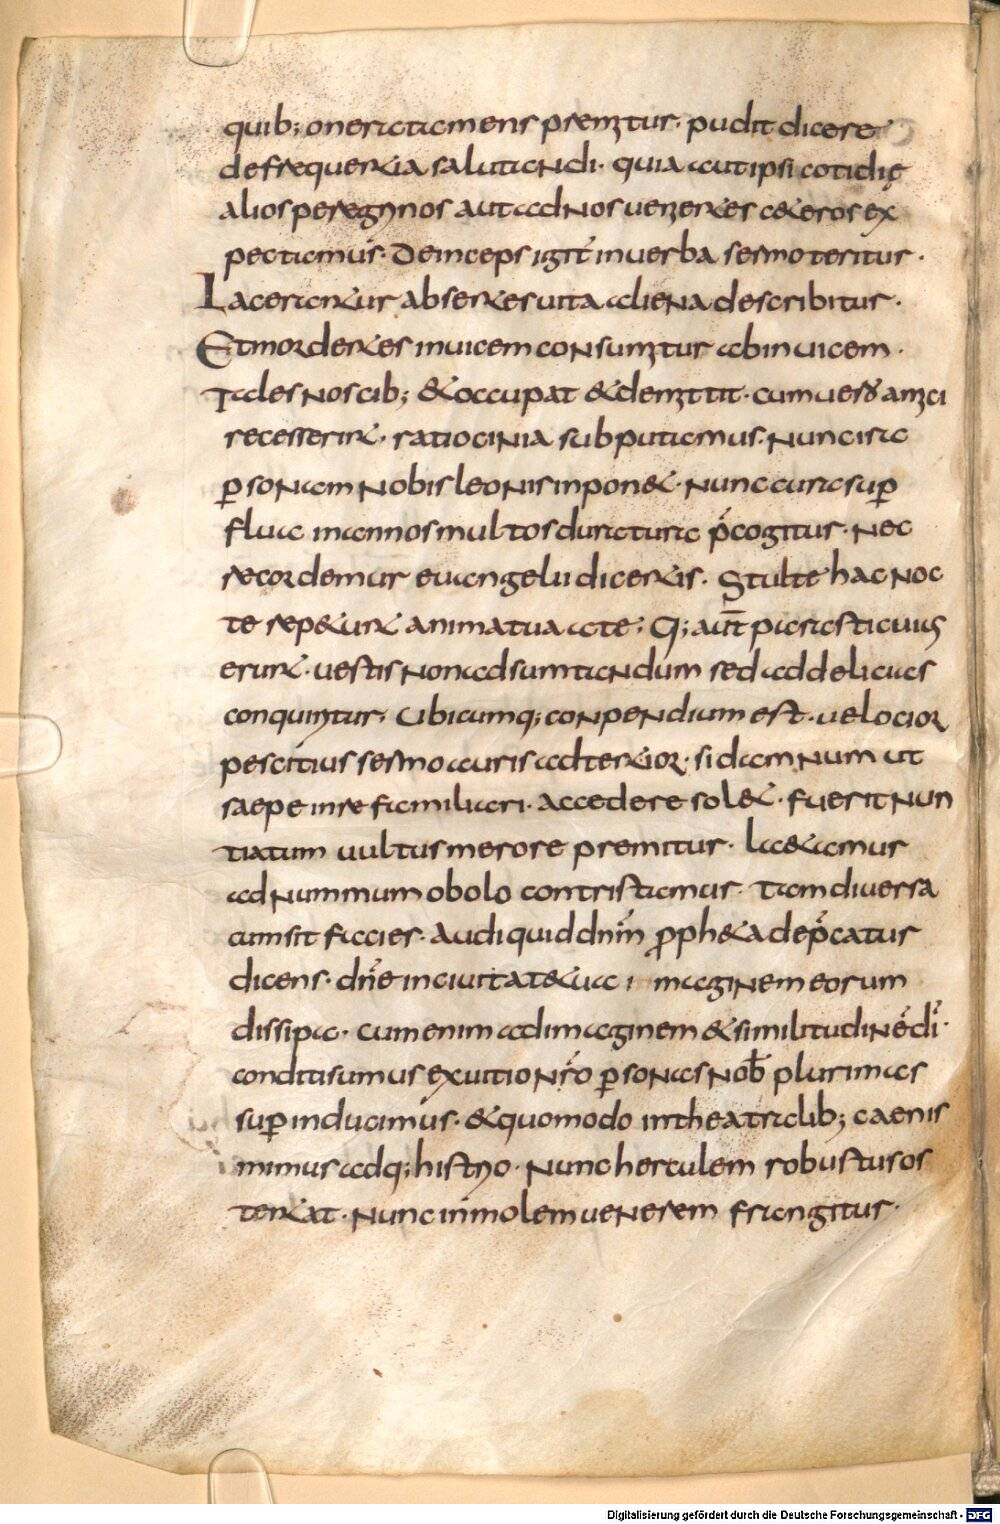 quib; onerata mens premitur. pudit dicere
de frequentia salutandi. quia aut ipsi cotidię
alios peregrinos aut ad nos uenientes ceteros ex
pectamus. Deinceps igit in uerba sermo teritur.
Lacerantur absentes uita aliena describitur.
Et mordentes inuicem consumitur ab inuicem.
Tales nos cib; & occupat & demittit. cum uero amici
recesserint. ratiocinia subputamus. Nunc ira
p̱sonam nobis leonis inpon&. nunc cura sup̱
flua in annos multos duratura p̍cogitur. Nec
recordemur euangelii dicentis. Stulte hac noc
te rep&unt animatua ate; Q; aut̅ parasti cuius
erunt. uestis non adsumtandum sed addelicias
conquiritur. Ubicumq; conpendium est. uelocior
pes citius sermo auris adtentior. si damnum ut
saepe in re familiari. accedere sol&. fuerit nun
tiatum uultus merore premitur. la&amur
ad nummum obolo contristamur. Tam diuersa
cum sit facies. Audi quid dn̅m̅ proph&a dep̍catur
dicens. dn̅e in ciuitat&ua i maginem eorum
dissipa. cum enim ad imaginem & similitudinē dī.
conditi sumus ex uitio nr̅o p̱sonas nob̅ plurimas
sup̱inducimus. & quomodo in theatralib; caenis
mimus adq; histrio. Nunc herculem robustus os
tentat. Nunc in molem uenerem frangitur.
Digitalisierung gefördert durch die Deutsche Forschungsgemeinschaft - DFG